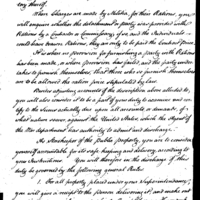 any thereof.
When Charges are made by Militia for their Rations, you
will enquire whether the detachment or party was provided with
Rations by a Contractor or Commissary; if so, and the Individuals
could have drawn Rations, they are only to be paid the Contract price.
It is when no provision for furnishing a party with Rations
has been made, or when provision has failed, and the party under-
takes to furnish themselves; that those who so furnish themselves
are to be allowed the ration price stipulated by law.
Besides adjusting accounts of the description above alluded to,
you will also consider it to be a part of your duty to examine and cer-
tify to the balance actually due upon all accounts or demands, of
what nature soever, against the United States, which the Agent of
the War department has authority to admit and discharge.
As Storekeeper of the Public property, you are to consider
yourself accountable for its safe keeping and delivery, according to
your Instructions. You will therefore in the discharge of this
duty be governed by the following general Rules.
1. For all property placed under your Superintendency,
you will give a receipt to the person delivering it, and make out